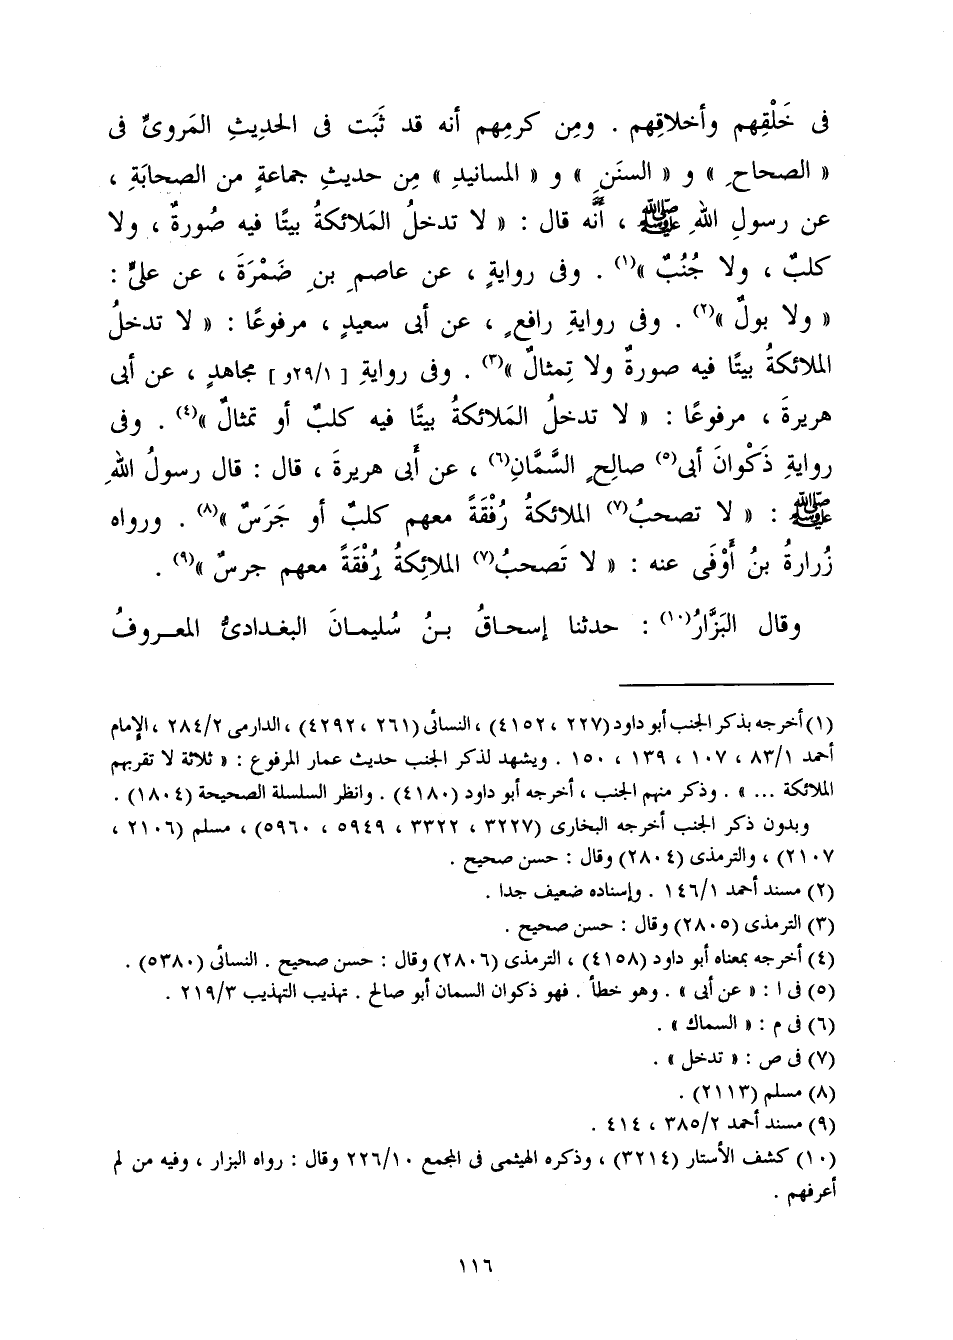 فى خَلْقِهم وأخلاقِهم . ومِن كرمِهم أنه قد ثَبَت فى الحديثِ المَروىِّ فى
« الصحاحِ » و « السننِ » و « المسانيدِ » مِن حديثِ جماعةٍ من الصحابَةِ ،
عن رسولِ اللهِ ﷺ ، أنَّه قال : « لا تدخلُ المَلائكةُ بيتًا فيه صُورةٌ ، ولا
كلبٌ ، ولا جُنُبٌ »(١) . وفى روايةٍ ، عن عاصمِ بنِ ضَمْرَةَ ، عن علىٍّ :
« ولا بولٌ »(٢) . وفى روايةِ رافعٍ ، عن أبى سعيدٍ ، مرفوعًا : « لا تدخلُ
الملائكةُ بيتًا فيه صورةٌ ولا تِمثالٌ »(٣) . وفى روايةِ [ ٢٩/١و ] مجاهدٍ ، عن أبى
هريرةَ ، مرفوعًا : « لا تدخلُ المَلائكةُ بيتًا فيه كلبٌ أو تمثالٌ »(٤) . وفى
روايةِ ذَكْوانَ أبى(٥) صالحٍ السَّمَّانِ(٦) ، عن أبى هريرةَ ، قال : قال رسولُ اللهِ
ﷺ : « لا تصحبُ(٧) الملائكةُ رُفْقَةً معهم كلبٌ أو جَرَسٌ »(٨) . ورواه
زُرارةُ بنُ أَوْفَى عنه : « لا تَصحبُ(٧) الملائِكةُ رُفْقَةً معهم جرسٌ »(٩) .
وقال البَزَّارُ(١٠) : حدثنا إسحاقُ بنُ سُليمانَ البغدادىُّ المعروفُ
(١) أخرجه بذكر الجنب أبو داود (٢٢٧ ، ٤١٥٢) ، النسائى (٢٦١ ، ٤٢٩٢) ، الدارمى ٢٨٤/٢ ، الإمام
أحمد ٨٣/١ ، ١٠٧ ، ١٣٩ ، ١٥٠ . ويشهد لذكر الجنب حديث عمار المرفوع : « ثلاثة لا تقربهم
الملائكة ... » . وذكر منهم الجنب ، أخرجه أبو داود (٤١٨٠) . وانظر السلسلة الصحيحة (١٨٠٤) .
وبدون ذكر الجنب أخرجه البخارى (٣٢٢٧ ، ٣٣٢٢ ، ٥٩٤٩ ، ٥٩٦٠) ، مسلم (٢١٠٦ ،
٢١٠٧) ، والترمذى (٢٨٠٤) وقال : حسن صحيح .
(٢) مسند أحمد ١٤٦/١ . وإسناده ضعيف جدا .
(٣) الترمذى (٢٨٠٥) وقال : حسن صحيح .
(٤) أخرجه بمعناه أبو داود (٤١٥٨) ، الترمذى (٢٨٠٦) وقال : حسن صحيح . النسائى (٥٣٨٠) .
(٥) فى ا : « عن أبى » . وهو خطأ . فهو ذكوان السمان أبو صالح . تهذيب التهذيب ٢١٩/٣ .
(٦) فى م : « السماك » .
(٧) فى ص : « تدخل » .
(٨) مسلم (٢١١٣) .
(٩) مسند أحمد ٣٨٥/٢ ، ٤١٤ .
(١٠) كشف الأستار (٣٢١٤) ، وذكره الهيثمى فى المجمع ٢٢٦/١٠ وقال : رواه البزار ، وفيه من لم
أعرفهم .
١١٦